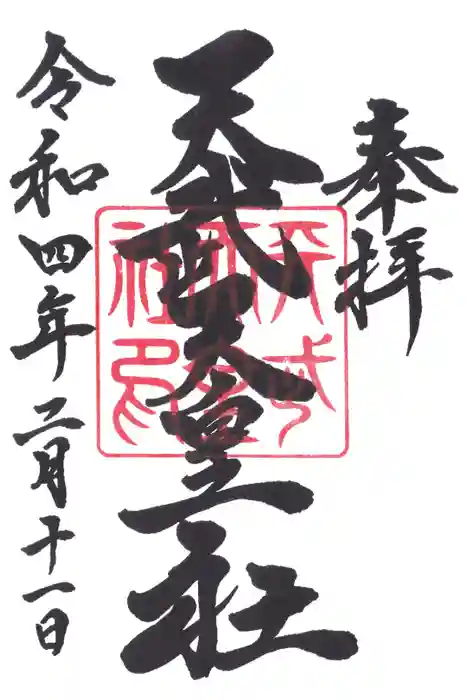 奉拝
天武天皇社
天武天皇社印
令和四年二月十一日